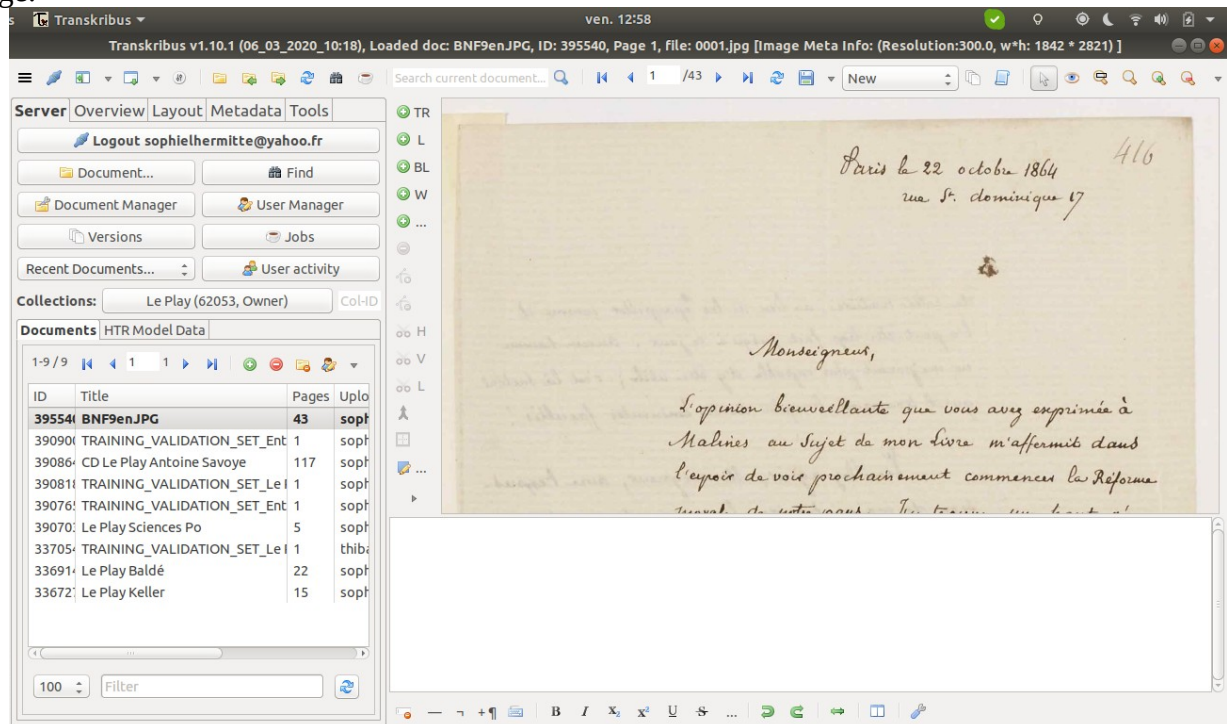 ge.
s Transkribus
ven. 12:58
Transkribus v1.10.1 (06_03_2020_10:18), Loaded doc: BNF9enJPG, ID: 395540, Page 1, file: 0001.jpg [Image Meta Info: (Resolution:300.0, w*h: 1842 * 2821) ]
Search current document... 1 /43 New
Server Overview Layout Metadata Tools
Logout sophielhermitte@yahoo.fr
Document... Find
Document Manager User Manager
Versions Jobs
Recent Documents... User activity
Collections: Le Play (62053, Owner) Col-ID
Documents HTR Model Data
1-9 / 9 1 1
ID Title Pages Uplo
395540 BNF9enJPG 43 soph
390900 TRAINING_VALIDATION_SET_Ent 1 soph
390864 CD Le Play Antoine Savoye 117 soph
390818 TRAINING_VALIDATION_SET_Le 1 soph
390765 TRAINING_VALIDATION_SET_Ent 1 soph
390703 Le Play Sciences Po 5 soph
337054 TRAINING_VALIDATION_SET_Le 1 thiba
336914 Le Play Baldé 22 soph
336727 Le Play Keller 15 soph
100 Filter
TR
L
BL
W
...
H
V
L
...
416
Paris le 22 octobre 1864
rue St. dominique 17
Monseigneur,
L'opinion bienveillante que vous avez exprimée à
Malines au Sujet de mon Livre m'affermit dans
l'espoir de voir prochainement commencer la Réforme
morale de notre pays.
B I X₂ X² U S ...